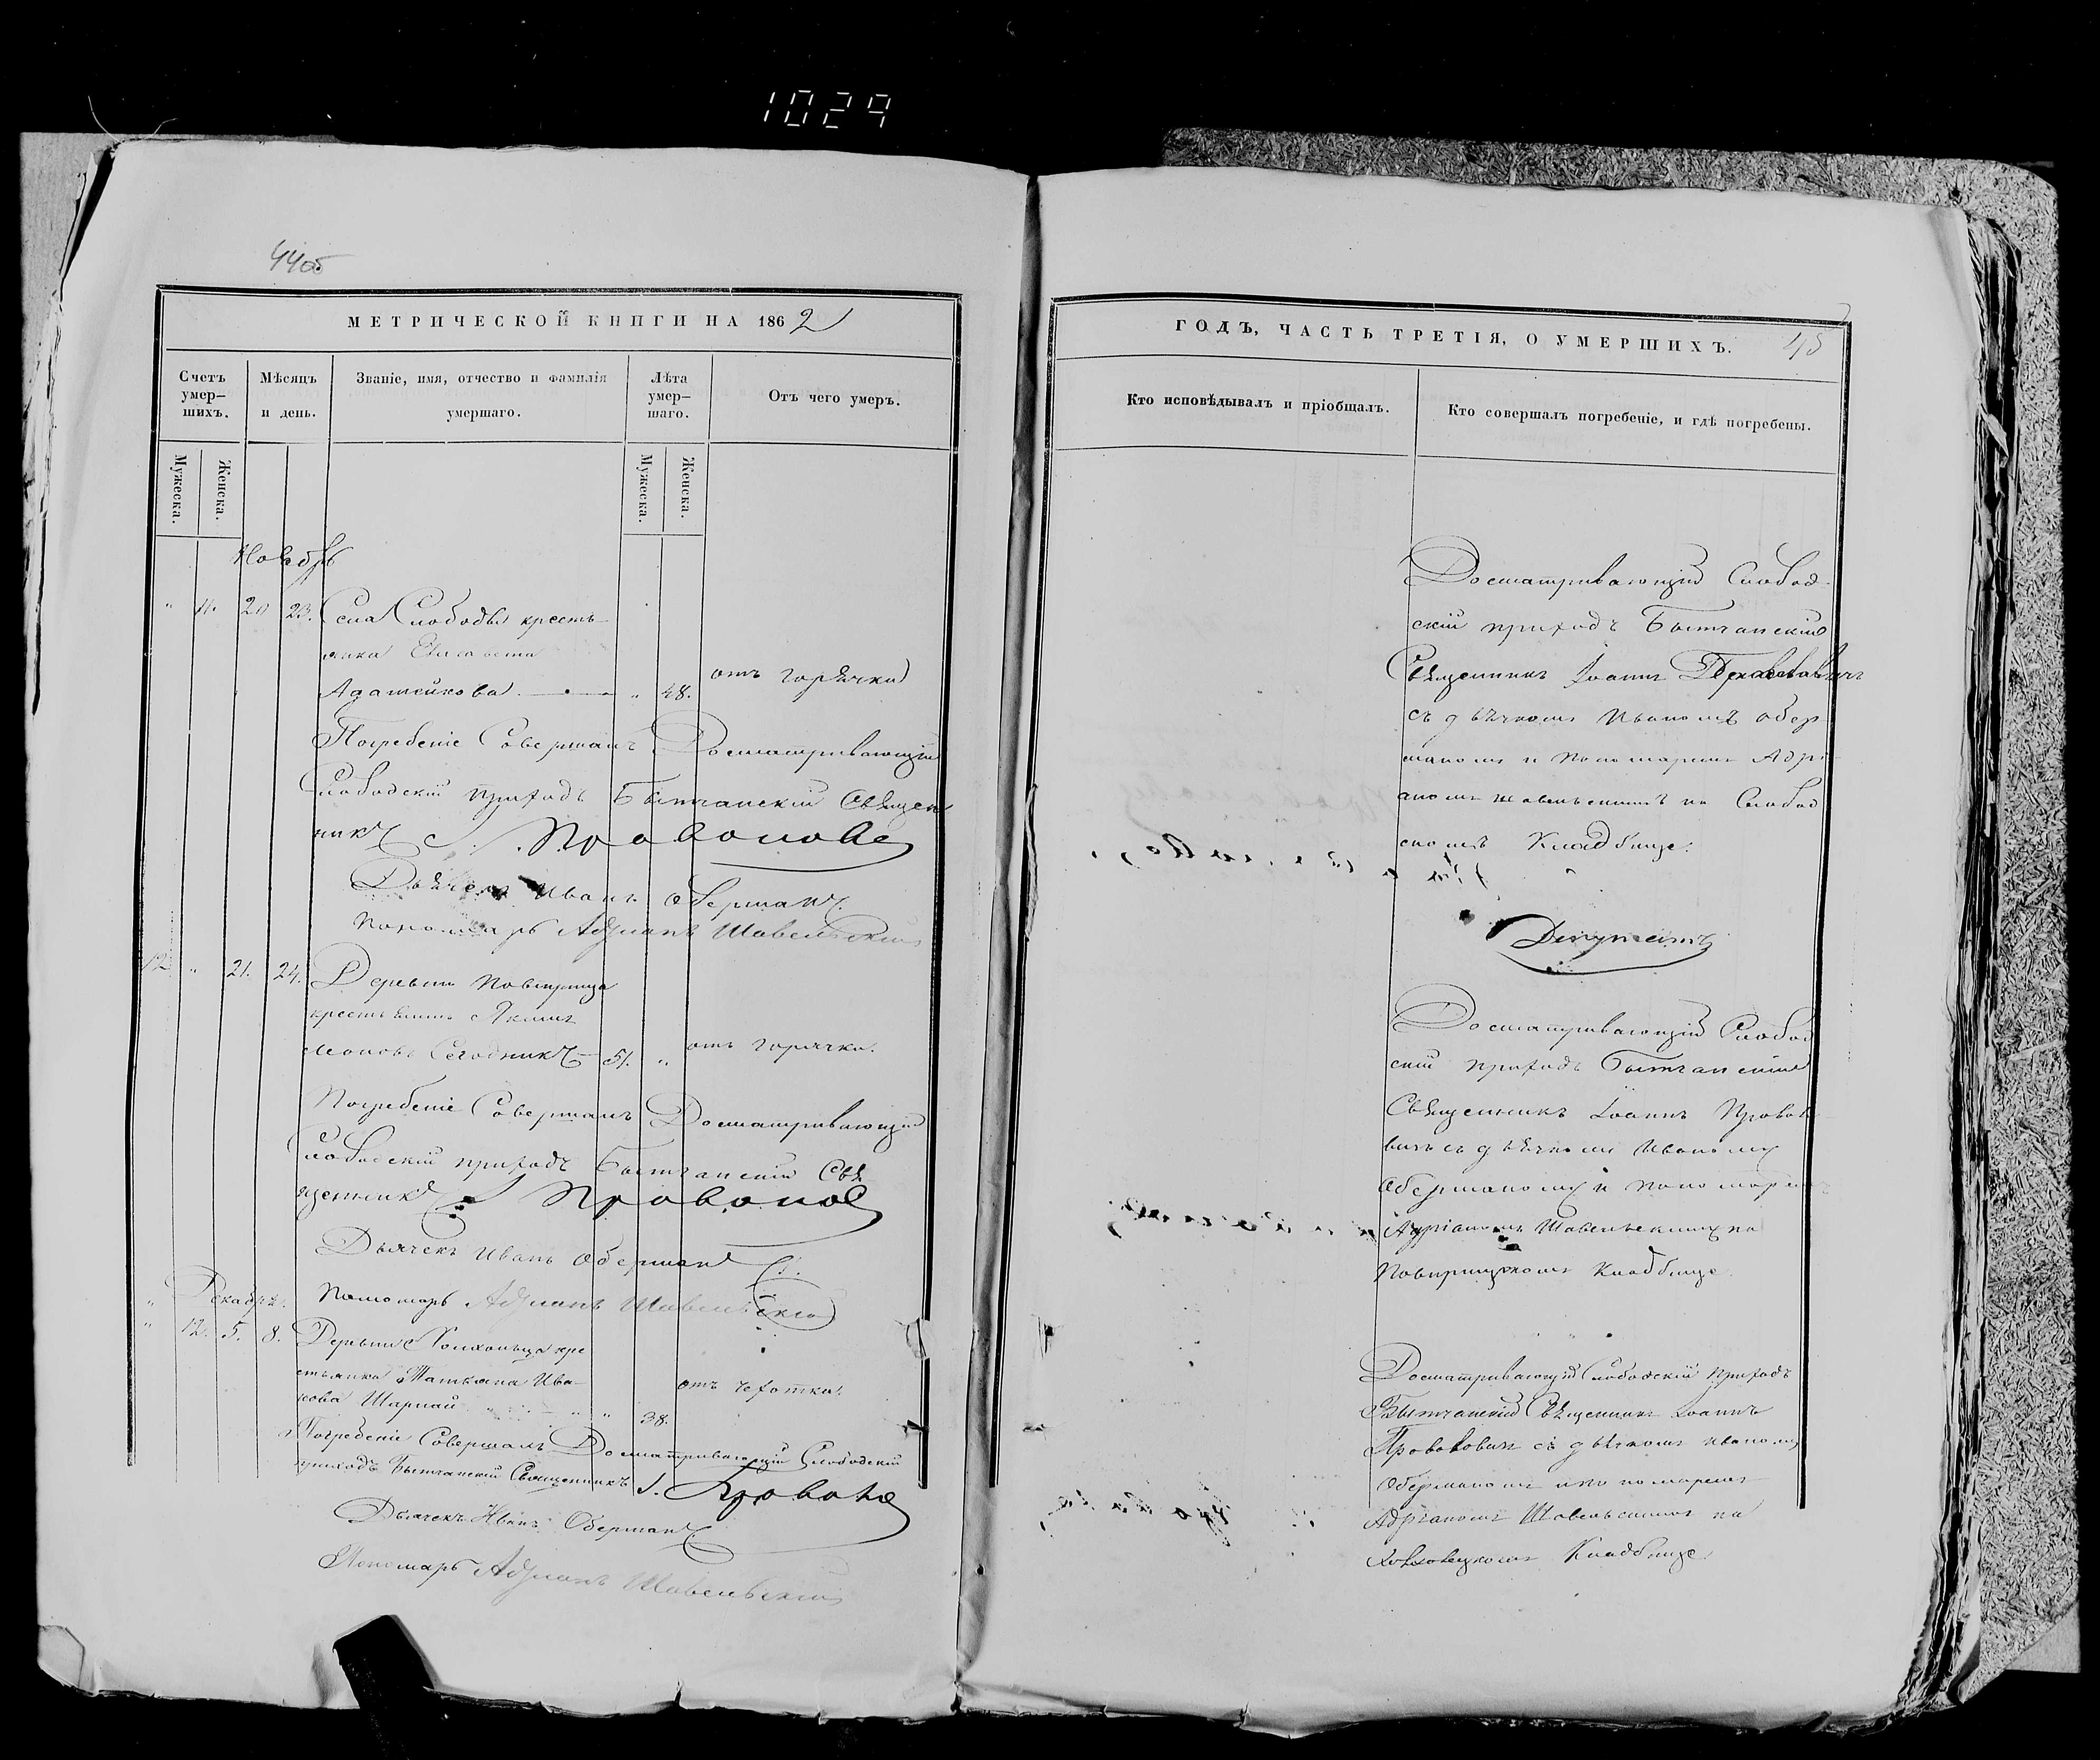 1029
44об
МЕТРИЧЕСКОЙ КНИГИ НА 1862
Счетъ умер–шихъ.
Мѣсяцъ и день.
Званіе, имя, отчество и фамилія умершаго.
Лѣта умер–шаго.
Отъ чего умеръ.
Мужеска.
Женска.
Мужеска.
Женска.
Ноябрь
" 11. 20 23. Села Слободы крестъ-
янка Елисавета
Адамейкова. " 48. отъ горячки
Погребеніе Совершалъ Досматривающій
Слободскій приходъ Бытчанскій Священ
никъ І. Провонове
Дьячекъ Иванъ Оберманъ
Пономарь Адріанъ Шавельскій
12 " 21. 24. Деревни
крестьянинъ Якимъ
51. " отъ горячки.
Погребеніе Совершалъ Досматривающій
Слободскій приходъ Бытчанскій Свя
щенникъ
Дьячекъ Иванъ Оберманъ
Пономарь Адріанъ Шавельскій
Декабрь
" 12. 5. 8. Деревни кре
стьянка Татьяна Ива-
нова Шарпай " 38. отъ чахотки.
Погребеніе Совершалъ Досматривающій Слободскій
приходъ Бытчанскій Священникъ І.
Дьячекъ Иванъ Оберманъ
Пономарь Адріанъ Шавельскій
ГОДЪ, ЧАСТЬ ТРЕТІЯ, О УМЕРШИХЪ. 45
Кто исповѣдывалъ и пріобщалъ.
Кто совершалъ погребеніе, и гдѣ погребены.
Досматривающій Слобод-
скій приходъ Бытчанскій
Священникъ Іоаннъ
съ дьячкомъ Иваномъ Обер
маномъ и пономаремъ Адрі
аномъ Шавельскимъ на Слобод
скомъ Кладбище.
Депутатъ
Досматривающій Слобод
скій приходъ Бытчанскій
Священникъ Іоаннъ Провоно
вичъ съ дьячкомъ Иваномъ
Оберманомъ и пономаремъ
Адріаномъ Шавельскимъ на
Кладбище.
Досматривающій Слободскій приходъ
Бытчанскій Священникъ Іоаннъ
съ дьячкомъ Иваномъ
Оберманомъ и пономаремъ
Адріаномъ Шавельскимъ на
Кладбище.